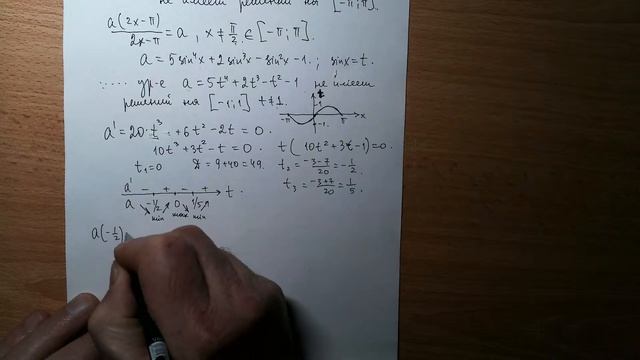 не имеет решений на [-π; π].
a(2x-π)/2x-π = a, x ≠ π/2 ∈ [-π; π].
a = 5sin⁴x + 2sin³x - sin²x - 1. ; sinx = t.
ур-е a = 5t⁴ + 2t³ - t² - 1 не имеет
решений на [-1; 1] t ≠ 1.
1
-π π x
-1
a' = 20·t³ + 6t² - 2t = 0.
10t³ + 3t² - t = 0. t(10t² + 3t - 1) = 0.
t₁ = 0 D = 9 + 40 = 49. t₂ = -3-7/20 = -1/2.
t₃ = -3+7/20 = 1/5.
a' - + - + t.
a -1/2 0 1/5
min max min
a(-1/2)